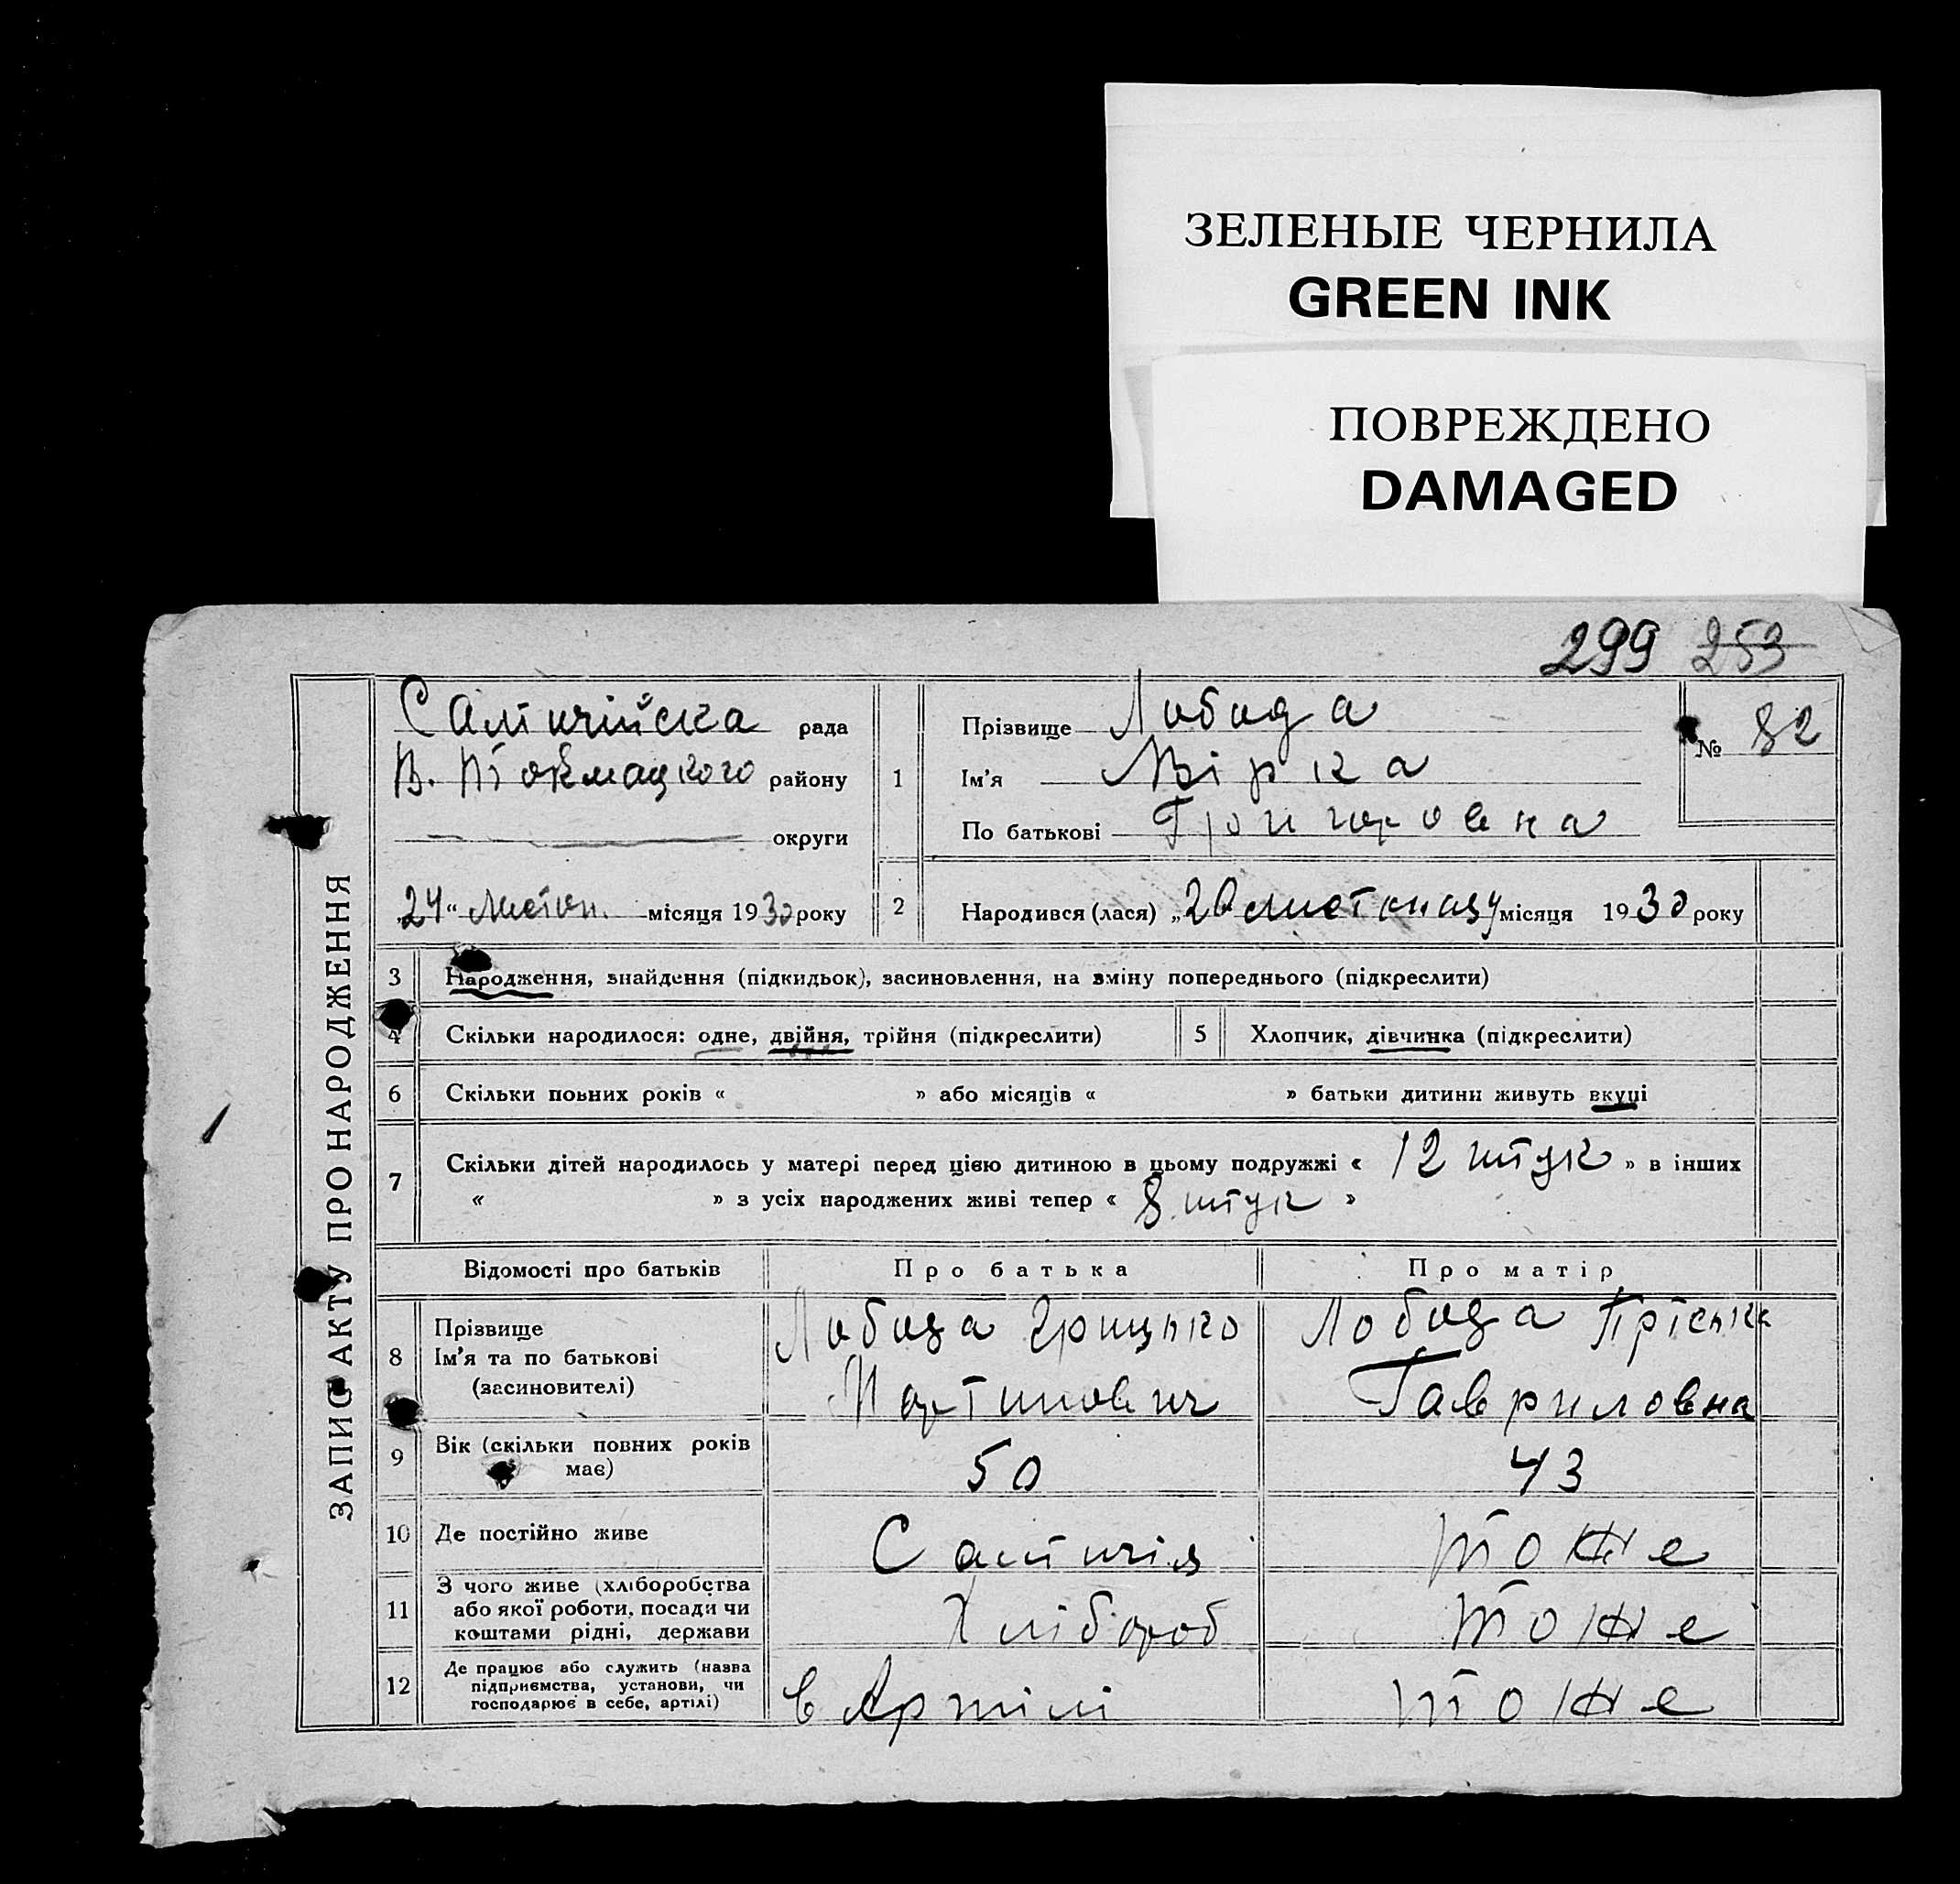 ЗЕЛЕНЫЕ ЧЕРНИЛА
GREEN INK
ПОВРЕЖДЕНО
DAMAGED
299 253
ЗАПИС АКТУ ПРО НАРОДЖЕННЯ
Салтичійска рада
В. Токмацкого району
округи
„24“ Листоп. місяця 1930 року
1
Прізвище Лобода
Ім’я Вірка
По батькові Григоровна
№ 82
2 Народився (лася) „20 листопаду місяця 1930 року
3 Народження, знайдення (підкидьок), засиновлення, на зміну попереднього (підкреслити)
4 Скільки народилося: одне, двійня, трійня (підкреслити) 5 Хлопчик, дівчинка (підкреслити)
6 Скільки повних років « » або місяців « » батьки дитини живуть вкупі
7 Скільки дітей народилось у матері перед цією дитиною в цьому подружжі « 12 штук » в інших
« » з усіх народжених живі тепер « 8 штук »
Відомості про батьків Про батька Про матір
8 Прізвище
Ім’я та по батькові
(засиновителі)
Лобода Грицько
Мартинович
Лобода Пріська
Гавриловна
9 Вік (скільки повних років
має)
50 43
10 Де постійно живе Салтичія тоже
11 З чого живе (хліборобства
або якої роботи, посади чи
коштами рідні, держави
Хлібороб тоже
12 Де працює або служить (назва
підприємства, установи, чи
господарює в себе, артілі)
в Артілі тоже